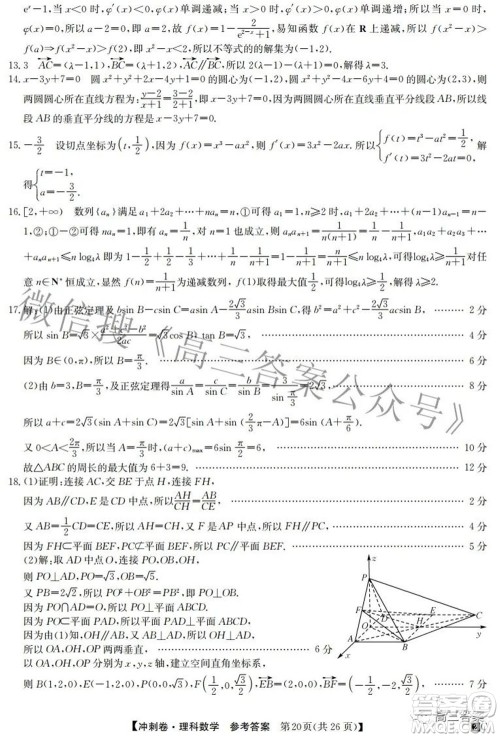 e^x-1,当x<0时,φ'(x)<0,φ(x)单调递减;当x>0时,φ'(x)>0,φ(x)单调递增;所以当x=0时,
φ(x)=0,所以a-2=0,即a=2,故f(x)=1-2/(e^{2-x}+1),易知函数f(x)在R上递减,所以f(x²-x)>
f(a)⇒f(x²-x)>f(2),即x²-x<2,所以不等式的的解集为(-1,2).
13. 3 AC=(λ-1,1),BC=(λ+1,2),AC∥BC,所以2(λ-1)-(λ+1)=0,解得λ=3.
14. x-3y+7=0 圆x²+y²+2x-4y+1=0的圆心为(-1,2),圆x²+y²-4x-6y+4=0的圆心为(2,3),则
两圆圆心所在直线方程为:(y-2)/(x+1)=(3-2)/(2+1),即x-3y+7=0.因为两圆心所在直线垂直平分线段AB,所以线
段AB的垂直平分线的方程是x-3y+7=0.
15. -3/2 设切点坐标为(t,1/2),因为f(x)=x³-ax²,则f'(x)=3x²-2ax.所以{f(t)=t³-at²=1/2, f'(t)=3t²-2at=0, 解
得{t=-1, a=-3/2.
16. [2,+∞) 数列{aₙ}满足a₁+2a₂+…+naₙ=n,①可得a₁=1,n≥2时,a₁+2a₂+…+(n-1)aₙ₋₁=n-
1,②;①-②可得naₙ=1,即aₙ=1/n,对n=1也成立,则aₙaₙ₊₁=1/(n(n+1))=1/n-1/(n+1),a₁a₂+a₂a₃+…
+aₙaₙ₊₁≤nlog₄λ即为1-1/2+1/2-1/3+…+1/n-1/(n+1)=1-1/(n+1)=n/(n+1)≤nlog₄λ,即有1/(n+1)≤log₄λ对任
意n∈N*恒成立,显然f(n)=1/(n+1)为递减数列,f(1)取得最大值1/2,可得log₄λ≥1/2,解得λ≥2.
17. 解:(1)由正弦定理及bsin B-csin C=asin A-(2√3/3)asin Bsin C,得b²=a²+c²-(2√3/3)acsin B. …… 2分
所以sin B=√3×(a²+c²-b²)/2ac=√3cos B,tan B=√3, …… 4分
因为B∈(0,π),所以B=π/3. …… 6分
(2)由b=3,B=π/3,及正弦定理得a/sin A=c/sin C=b/sin B=3/sin π/3=2√3, …… 8分
所以a+c=2√3(sin A+sin C)=2√3[sin A+sin(2π/3-A)]=6sin(A+π/6).
又0<A<2π/3,所以当A=π/3时,(a+c)max=6sin π/2=6, …… 10分
故△ABC的周长的最大值为6+3=9. …… 12分
18. (1)证明:连接AC,交BE于点H,连接FH,
因为AB∥CD,E为CD中点,所以AH/CH=AB/CE, …… 2分
又AB=1/2CD=CE,所以AH=CH,又F是AP中点,所以FH∥PC, …… 4分
因为FH⊂平面BEF,PC⊄平面BEF,所以PC∥平面BEF. …… 5分
(2)解:取AD中点O,连接PO,OB,OH,
则PO⊥AD,PO=√3,OB=√5,
又PB=2√2,所以PO²+OB²=PB²,即PO⊥OB.
因为PO∩AD=O,所以PO⊥平面ABCD.
因为PO⊂平面PAD,所以平面PAD⊥平面ABCD.
因为由(1)知,OH∥AB,又AB⊥AD,所以OH⊥AD
所以OA,OH,OP两两垂直, …… 6分
以OA,OH,OP分别为x,y,z轴,建立空间直角坐标系,
则B(1,2,0),E(-1,2,0),P(0,0,√3),F(1/2,0,√3/2),EB=(2,0,0),BF=(-1/2,-2,√3/2),
z
P
F
D
E
C
O
H
A
B
x
y
【冲刺卷·理科数学 参考答案 第20页(共26页)】
微信搜《高三答案公众号》
高三答案